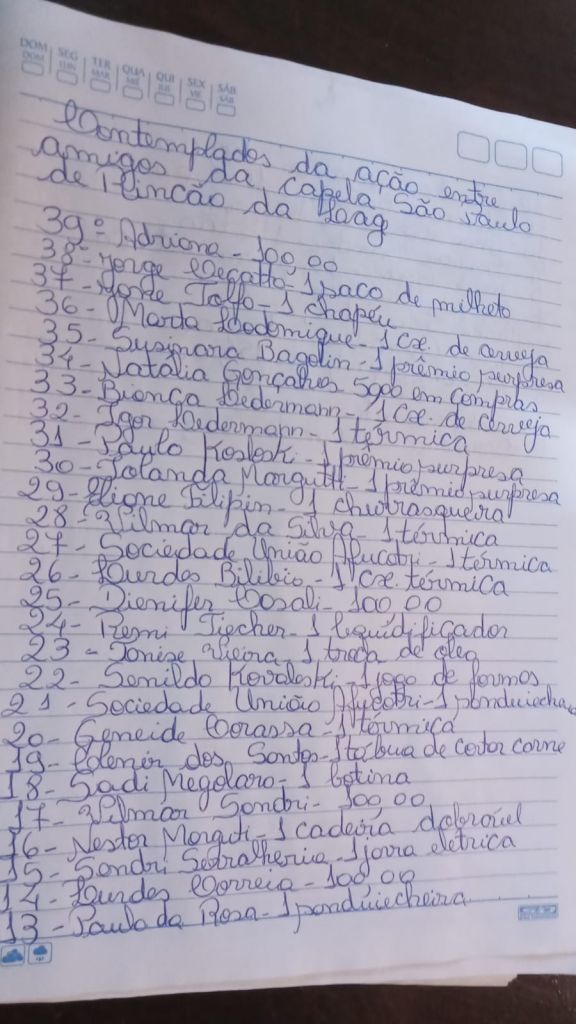 DOM SEG TER QUA QUI SEX SÁB
DOM LUN MAR MIÉ JUE VIE SÁB
Contemplados da ação entre
amigos da Capela São Paulo
de Rincão da Haag
39º- Adriana - 100,00
38º- Jorge - 1 saco de milheto
37- Tolfo - 1 chapéu
36- Marta - 1 Cx. de cerveja
35- Susinara Bagolin - 1 prêmio surpresa
34- Natália Gonçalves 50,00 em compras
33- Bianca Ledermann - 1 Cx. de cerveja
32- Igor Ledermann - 1 térmica
31- Paulo Kosloski - 1 prêmio surpresa
30- Iolanda Margutti - 1 prêmio surpresa
29- Elione Filipin - 1 churrasqueira
28- Vilmar da Silva - 1 térmica
27- Sociedade União - 1 térmica
26- Lurdes Bilibio - 1 Cx. térmica
25- Dienifer Cosali - 100,00
24- Remi Fiecher - 1 liquidificador
23- Vieira - 1 troca de óleo
22- Senildo Kovaleski - 1 jogo de formas
21- Sociedade União - 1
20- Geneide Corassa - 1 térmica
19- dos Santos - 1 tábua de cortar carne
18- Sadi Megolaro - 1 botina
17- Vilmar Sondri - 100,00
16- Nestor Morguti - 1 cadeira dobrável
15- Sondri Serralheria - 1 jarra elétrica
14- Lurdes Correia - 100,00
13- Paulo da Rosa - 1 panduiecheira